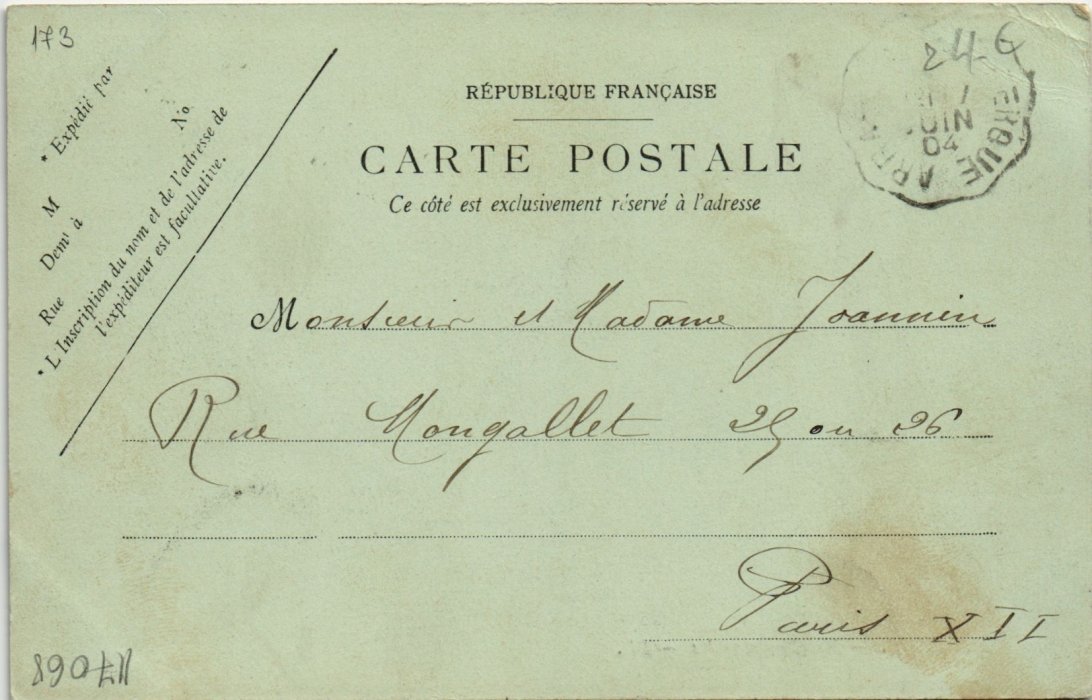 173
24 6
* Expédié par
No
M
Demt à
Rue
* L'Inscription du nom et de l'adresse de
l'expéditeur est facultative.
RÉPUBLIQUE FRANÇAISE
CARTE POSTALE
Ce côté est exclusivement réservé à l'adresse
JUIN
04
Monsieur et Madame Joannin
Rue Mongallet 25 ou 26
Paris XII